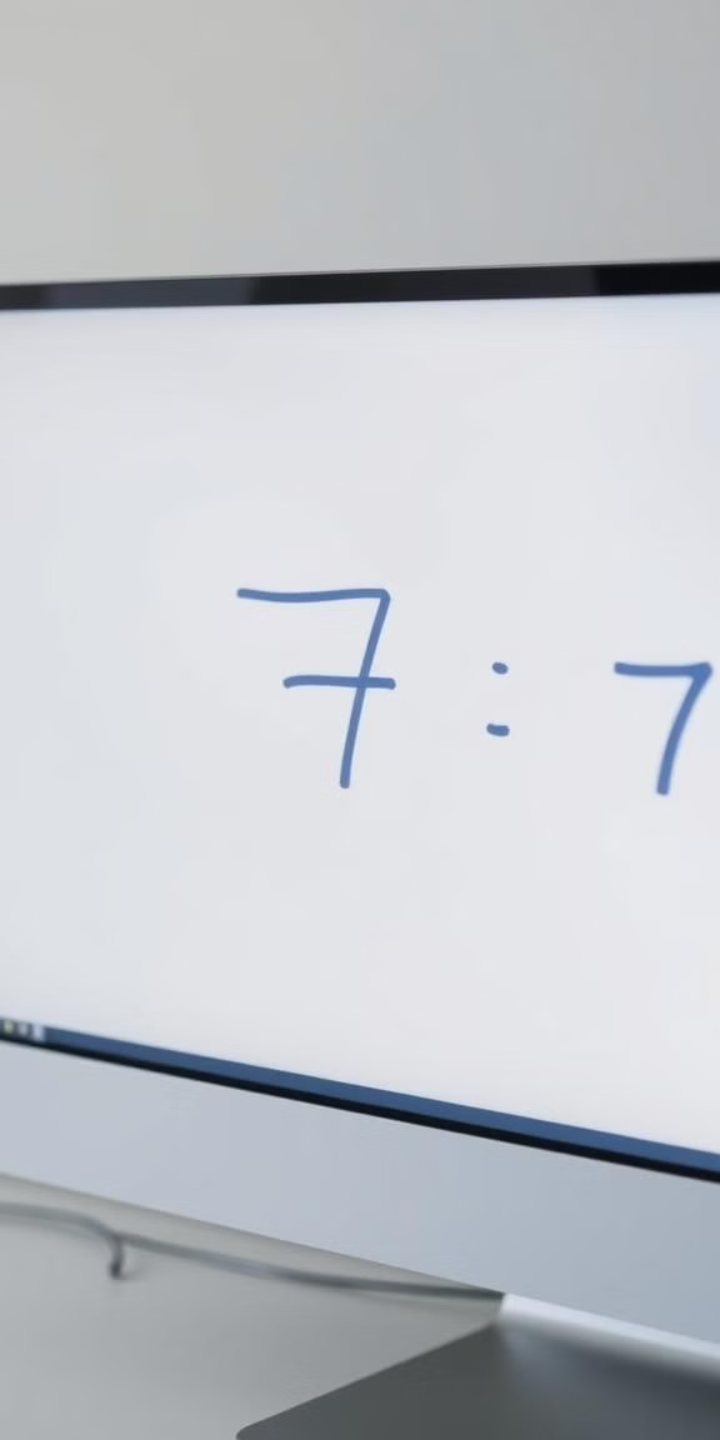 7 : 7